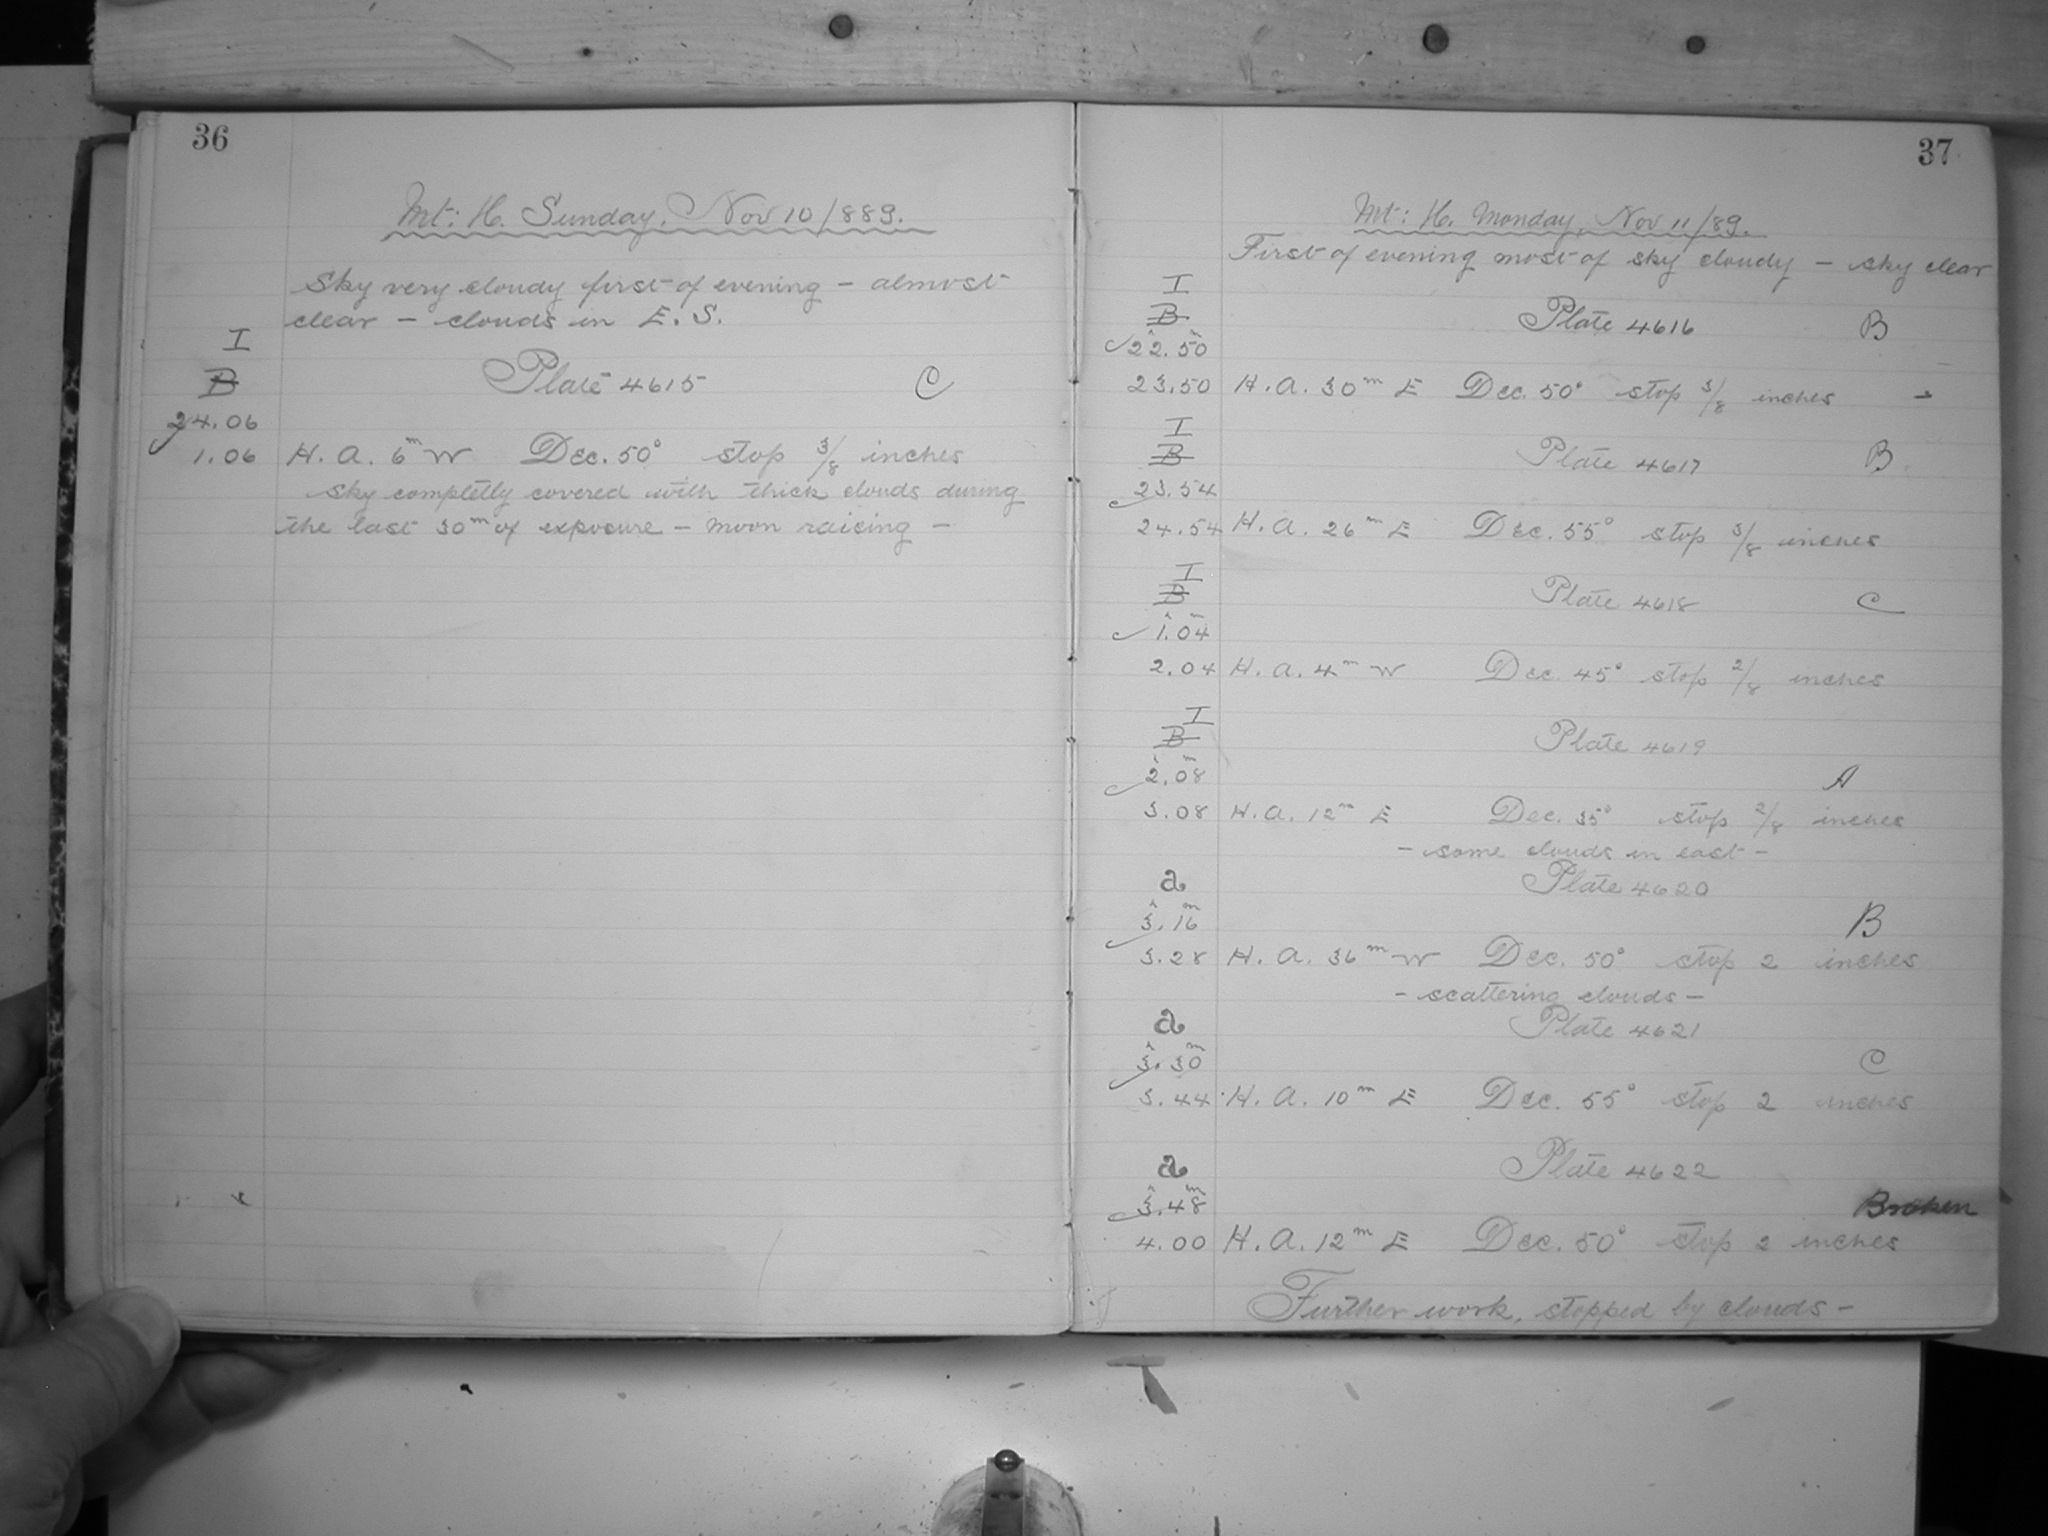 36
Mt: H. Sunday, Nov 10/889.
Sky very cloudy first of evening – almost
clear – clouds in E. S.
I
B
Plate 4615 C
24.06
1.06 H. A. 6m W Dec. 50° stop 3/8 inches
Sky completly covered with thick clouds during
the last 30m of exposure – moon raising –
37
Mt: H. Monday, Nov 11/89.
First of evening most of sky cloudy – sky clear
I
B Plate 4616 B
h m
22.50
23.50 H. A. 30m E Dec. 50° stop 3/8 inches
I
B Plate 4617 B
23.54
24.54 H. A. 26m E Dec. 55° stop 3/8 inches
I
B Plate 4618 C
h m
1.04
2.04 H. A. 4m W Dec. 45° stop 2/8 inches
I
B Plate 4619
h m
2.08 A
3.08 H. A. 12m E Dec. 35° stop 2/8 inches
– some clouds in east –
a Plate 4620
h m
3.16 B
3.28 H. A. 36m W Dec. 50° stop 2 inches
– scattering clouds –
a Plate 4621
h m
3.30 C
3.44 H. A. 10m E Dec. 55° stop 2 inches
a Plate 4622
h m
3.48 Broken
4.00 H. A. 12m E Dec. 50° stop 2 inches
Further work, stopped by clouds –